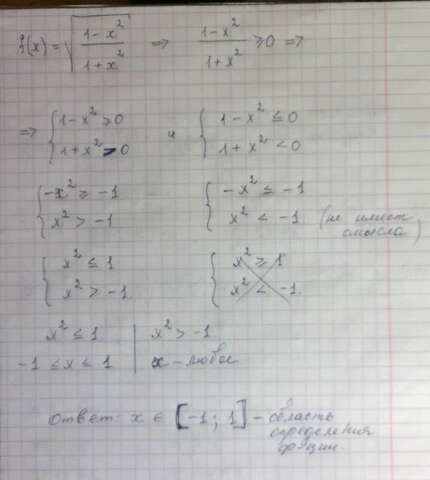 f(x) = √((1-x²)/(1+x²)) ⇒ (1-x²)/(1+x²) ≥ 0 ⇒
⇒ { 1-x² ≥ 0 и { 1-x² ≤ 0
1+x² > 0 1+x² < 0
{ -x² ≥ -1 { -x² ≤ -1
x² > -1 x² < -1 (не имеет смысла)
{ x² ≤ 1 { x² ≥ 1
x² > -1 x² < -1
x² ≤ 1 | x² > -1
-1 ≤ x ≤ 1 | x - любое
Ответ: x ∈ [-1; 1] - область
определения